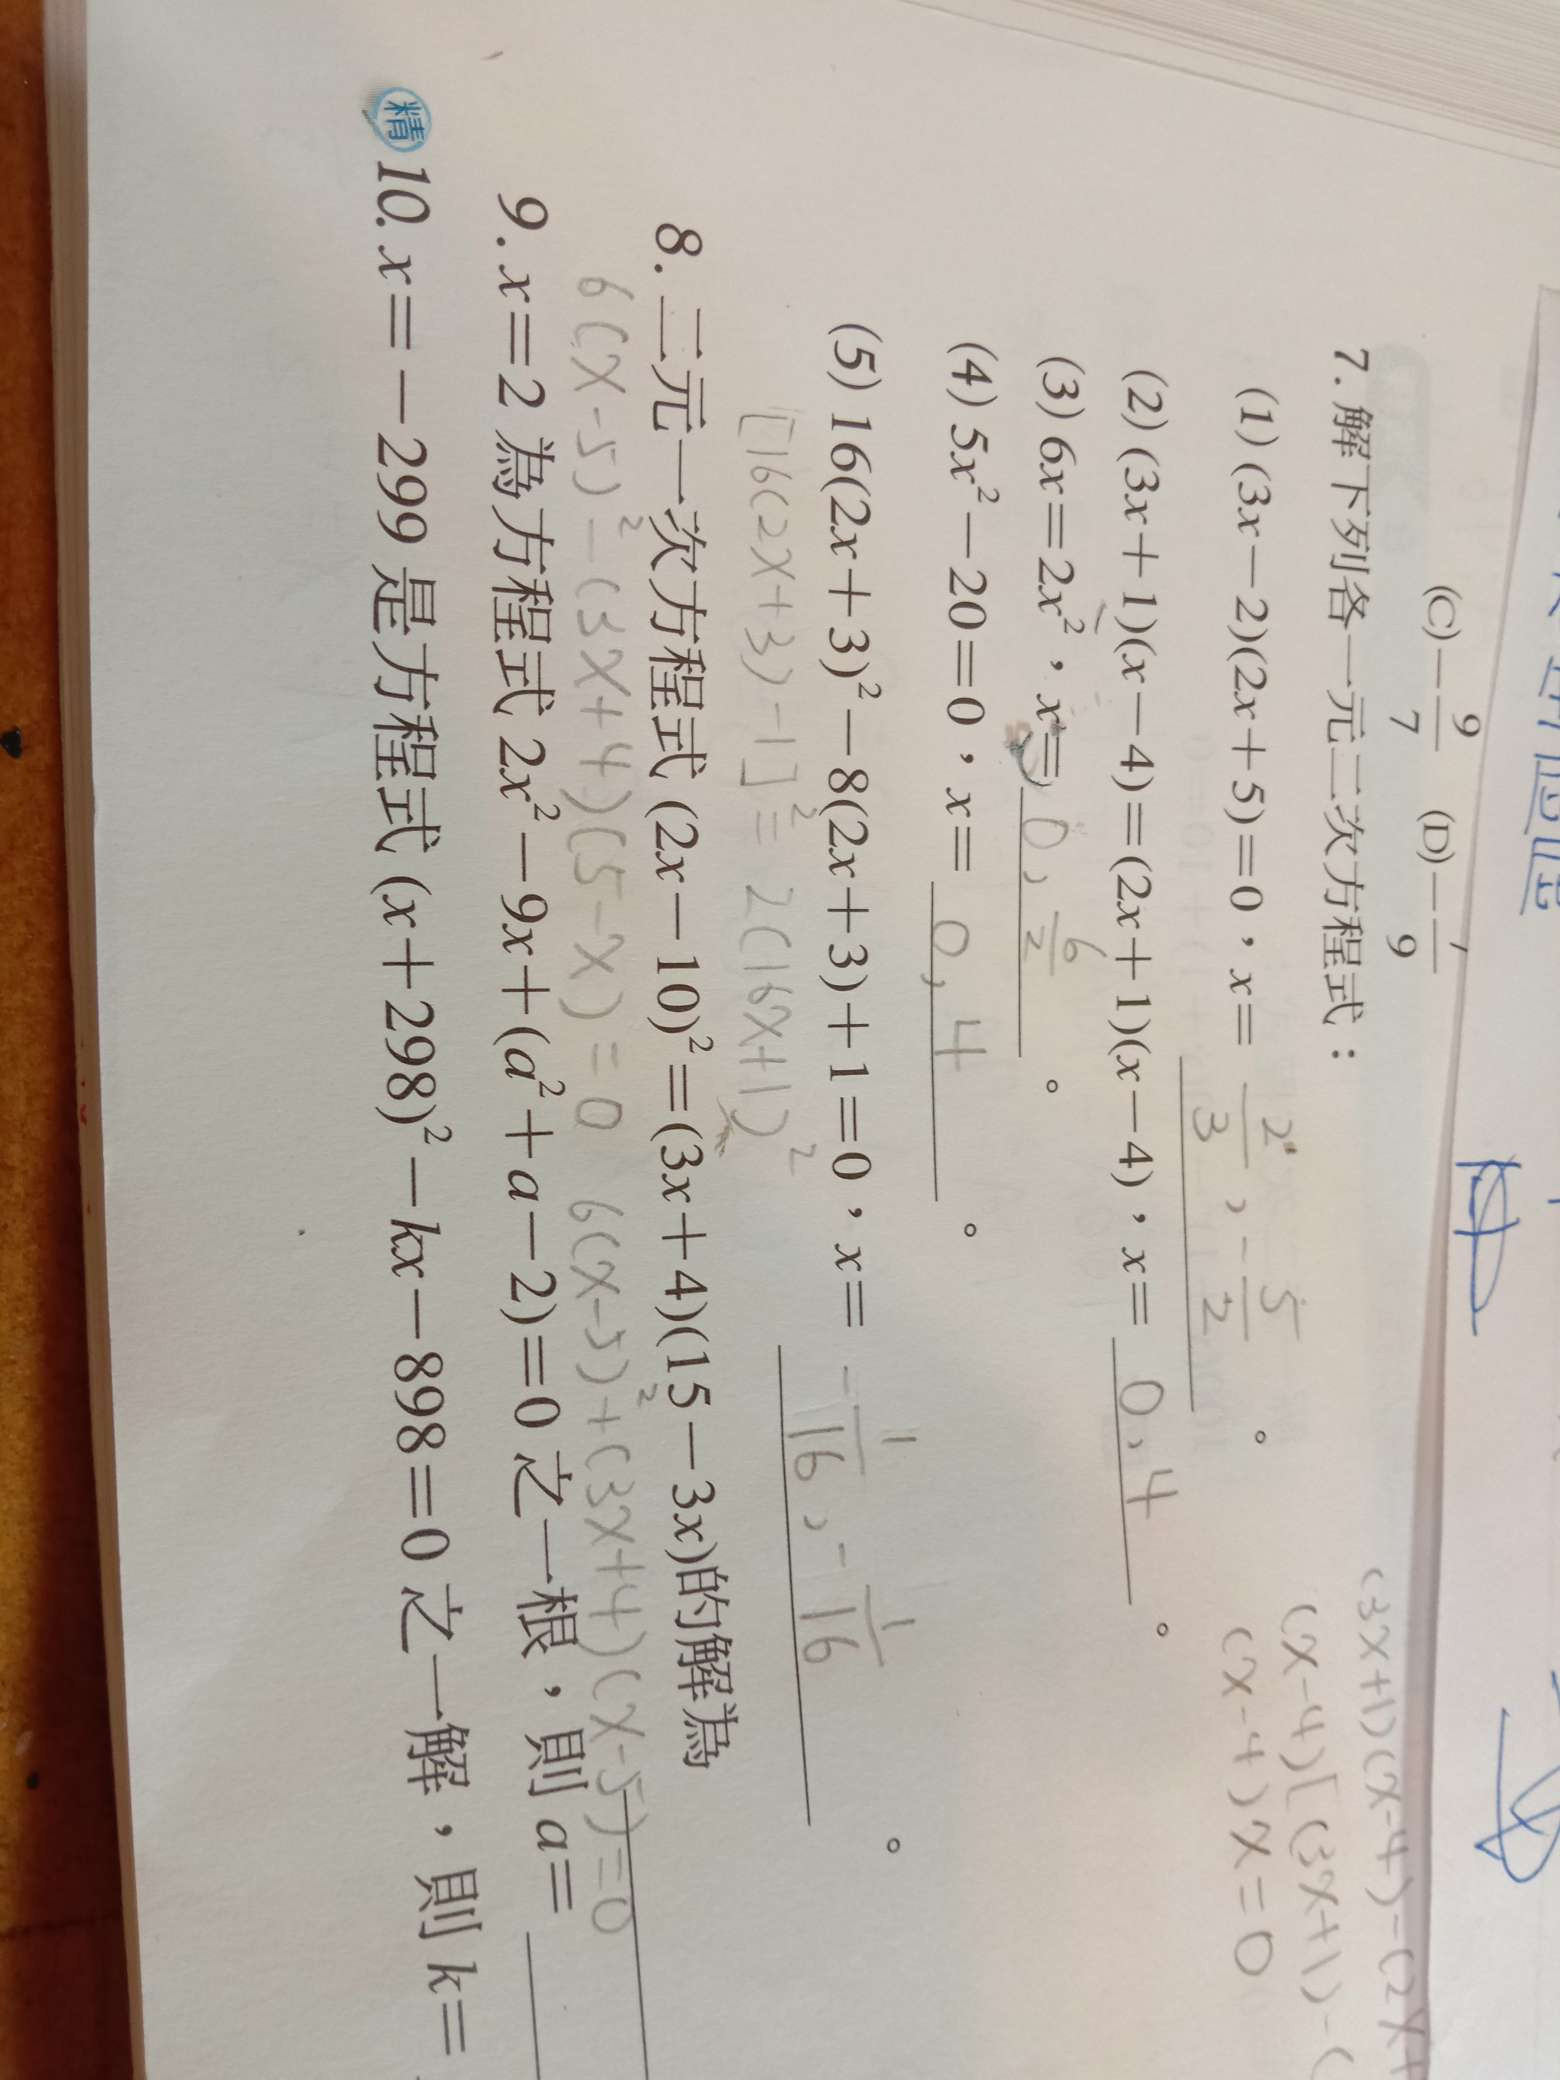 (C)－9/7 (D)－7/9
7. 解下列各一元二次方程式：
(1) (3x－2)(2x＋5)＝0，x＝ 2/3 , -5/2 。
(2) (3x＋1)(x－4)＝(2x＋1)(x－4)，x＝ 0,4 。
(3) 6x＝2x²，x＝ 0, 6/2 。
(4) 5x²－20＝0，x＝ 0,4 。
(5) 16(2x＋3)²－8(2x＋3)＋1＝0，x＝ -1/16 , -1/16 。
[16(2x+3)-1]²=2(16x+1)²
8. 二元一次方程式 (2x－10)²＝(3x＋4)(15－3x)的解為
6(x-5)²-(3x+4)(5-x)=0 6(x-5)²+(3x+4)(x-5)=0
9. x＝2 為方程式 2x²－9x＋(a²＋a－2)＝0 之一根，則 a＝
精 10. x＝－299 是方程式 (x＋298)²－kx－898＝0 之一解，則 k＝
(3x+1)(x-4)-(2x+
(x-4)[(3x+1)-(
(x-4)x=0